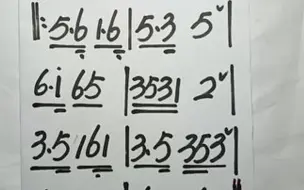 ‖: 5·6 1·6 | 5·3 5ˇ |
6·i 65 | 3531 2ˇ |
3·5 161 | 3·5 353ˇ |